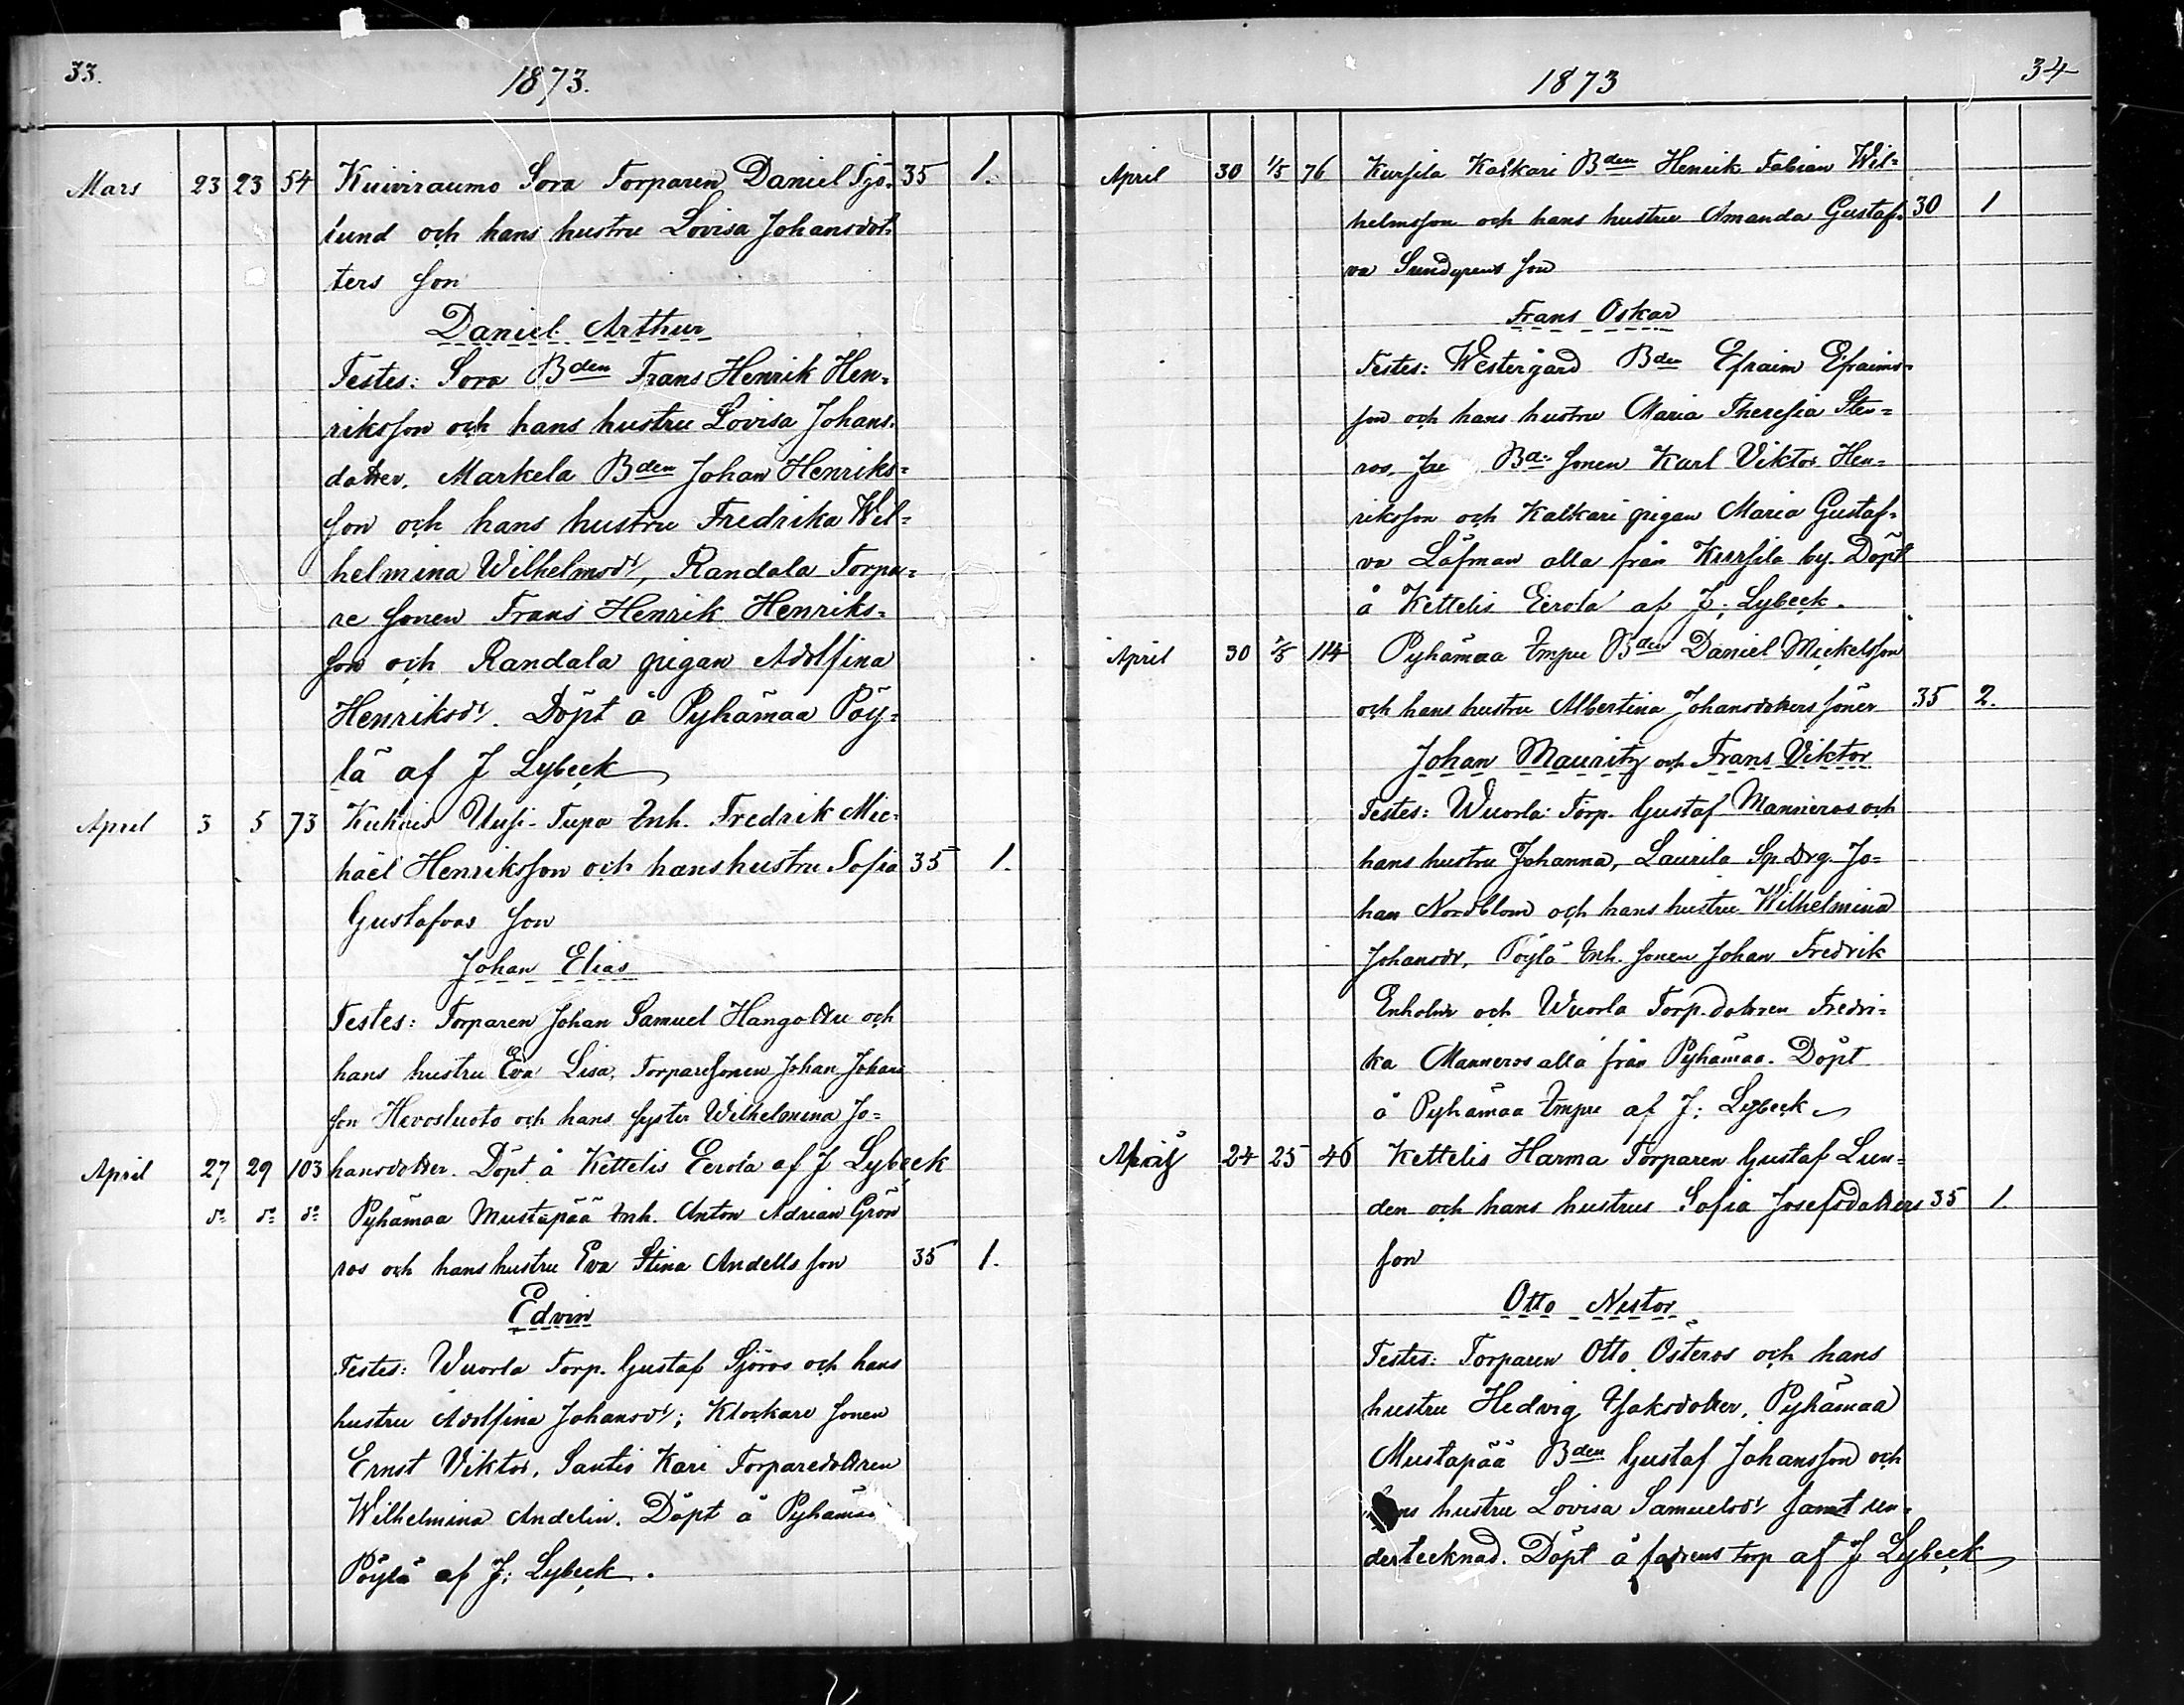 33.
1873.
Mars 23 23 54 Kuiviraumo Sora Torparen Daniel Sjö- 35 1.
lund och hans hustru Lovisa Johansdot-
ters son
Daniel Arthur
Testes: Sora Bden Frans Henrik Hen-
riksson och hans hustru Lovisa Johans-
dotter, Markela Bden Johan Henriks=
son och hans hustru Fredrika Wil=
helmina Wilhelmsdr, Randala Torpa=
re sonen Frans Henrik Henriks=
son och Randala pigan Adolfina
Henriksdr. Döpt å Pyhämaa Pöy=
lä af J Lybeck
April 3 5 73 Kukais Uusi-Tupa Inh. Fredrik Mic-
häel Henriksson och hans hustru Sofia 35 1.
Gustafvas son
Johan Elias
Testes: Torparen Johan Samuel Hango och
hans hustru Eva Lisa, Torparesonen Johan Johans
son Hevosluoto och hans syster Wilhelmina Jo=
April 27 29 103 hansdotter. Döpt å Kettelis Eerola af J Lybeck
do do do Pyhämaa Mustapää Inh. Anton Adrian Grön
ros och hans hustru Eva Stina Andells son 35 1.
Edvin
Testes: Wuorla Torp. Gustaf Sjöros och hans
hustru Adolfina Johansdr; Klockare sonen
Ernst Viktor, Santis Kari Torparedottren
Wilhelmina Andelin. Döpt å Pyhämaa
Pöylä af J: Lybeck.
1873
34
April 30 1/5 76 Kursila Kalkari Bden Henrik Fabian Wil=
helmsson och hans hustru Amanda Gustaf- 30 1
va Sundgrens son
Frans Oskar
Testes: Westergård Bden Efraim Efraims-
son och hans hustru Maria Theresia Sten=
ros, Bd. sonen Karl Viktor Hen=
riksson och Kalkari pigan Maria Gustaf=
va Löfman alla från Kursila by. Döpt
å Kettelis Eerola af J: Lybeck.
April 30 2/5 114 Pyhämaa Impu Bden Daniel Mickelsson
och hans hustru Albertina Johansdotters söner 35 2.
Johan Mauritz och Frans Viktor
Testes: Wuorla Torp. Gustaf Manneros och
hans hustru Johanna, Laurila Sp. Drg. Jo=
han Nordblom och hans hustru Wilhelmina
Johansdr, Pöylä Inh. sonen Johan Fredrik
Enholm och Wuorla Torp. dottren Fredri=
ka Manneros alla från Pyhämaa. Döpt
å Pyhämaa Impu af J: Lybeck
24 25 46 Kettelis Harma Torparen Gustaf Lun=
den och hans hustrus Sofia Josefsdotters 35 1.
son
Otto Nestor
Testes: Torparen Otto Österos och hans
hustru Hedvig Isaksdotter, Pyhämaa
Mustapää Bden Gustaf Johansson och
hans hustru Lovisa Samuelsdr samt un-
dertecknad. Döpt å fadrens torp af J Lybeck